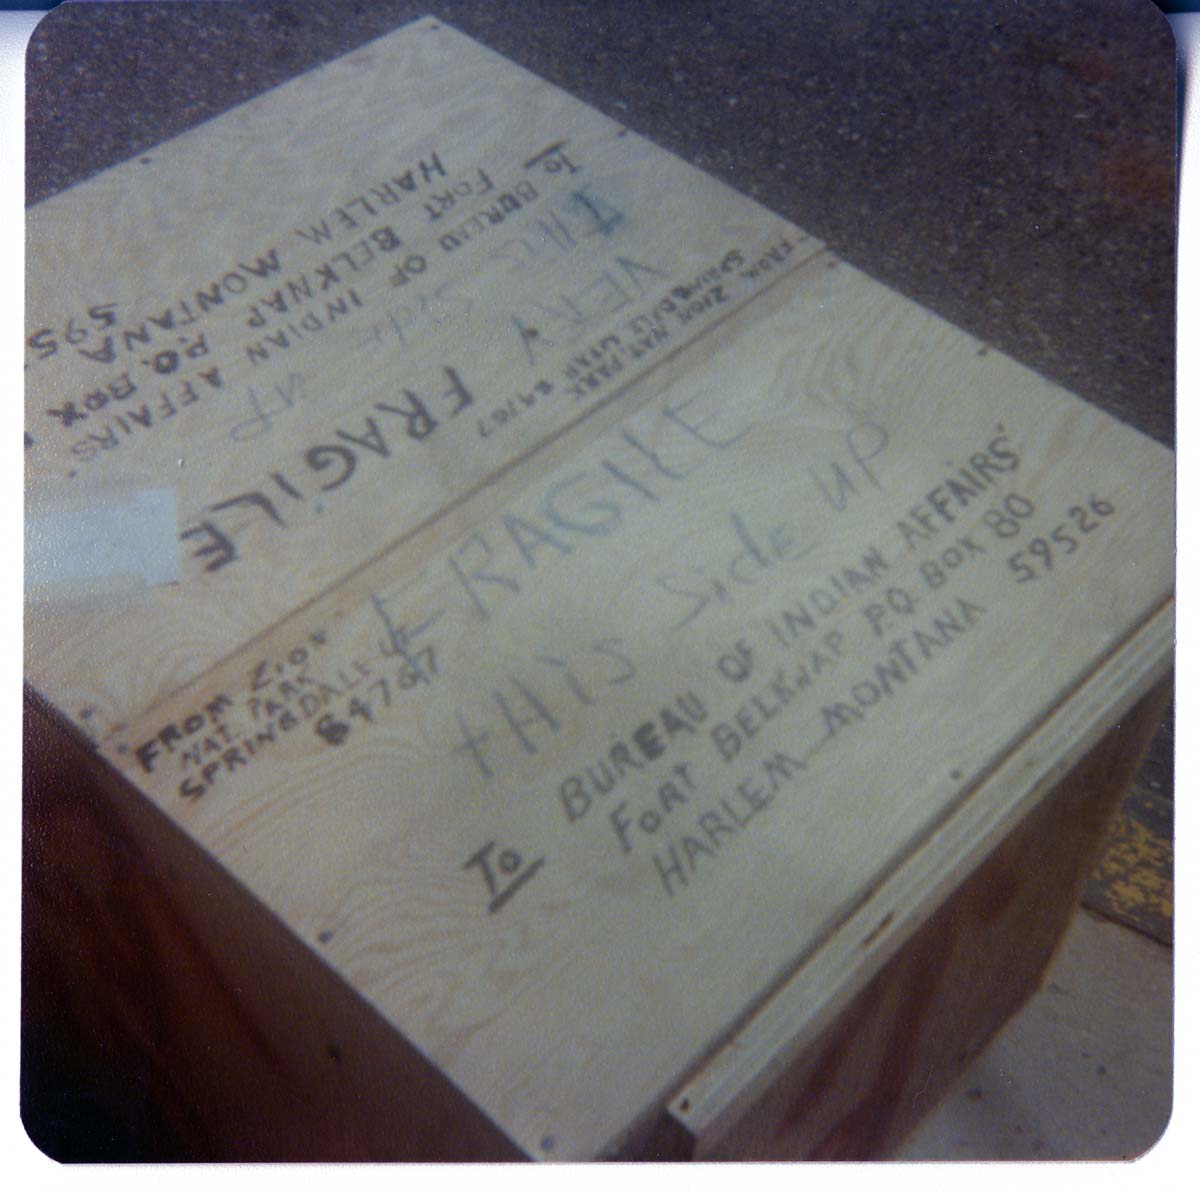 FRAGILE
THIS SIDE UP
FROM ZION
NAT. PARK
SPRINGDALE UT
84767
TO BUREAU OF INDIAN AFFAIRS
FORT BELKNAP P.O. BOX 80
HARLEM MONTANA 59526
FROM ZION NAT. PARK
SPRINGDALE UTAH 84767
VERY FRAGILE
THIS SIDE UP
TO BUREAU OF INDIAN AFFAIRS
FORT BELKNAP P.O. BOX
HARLEM MONTANA 595